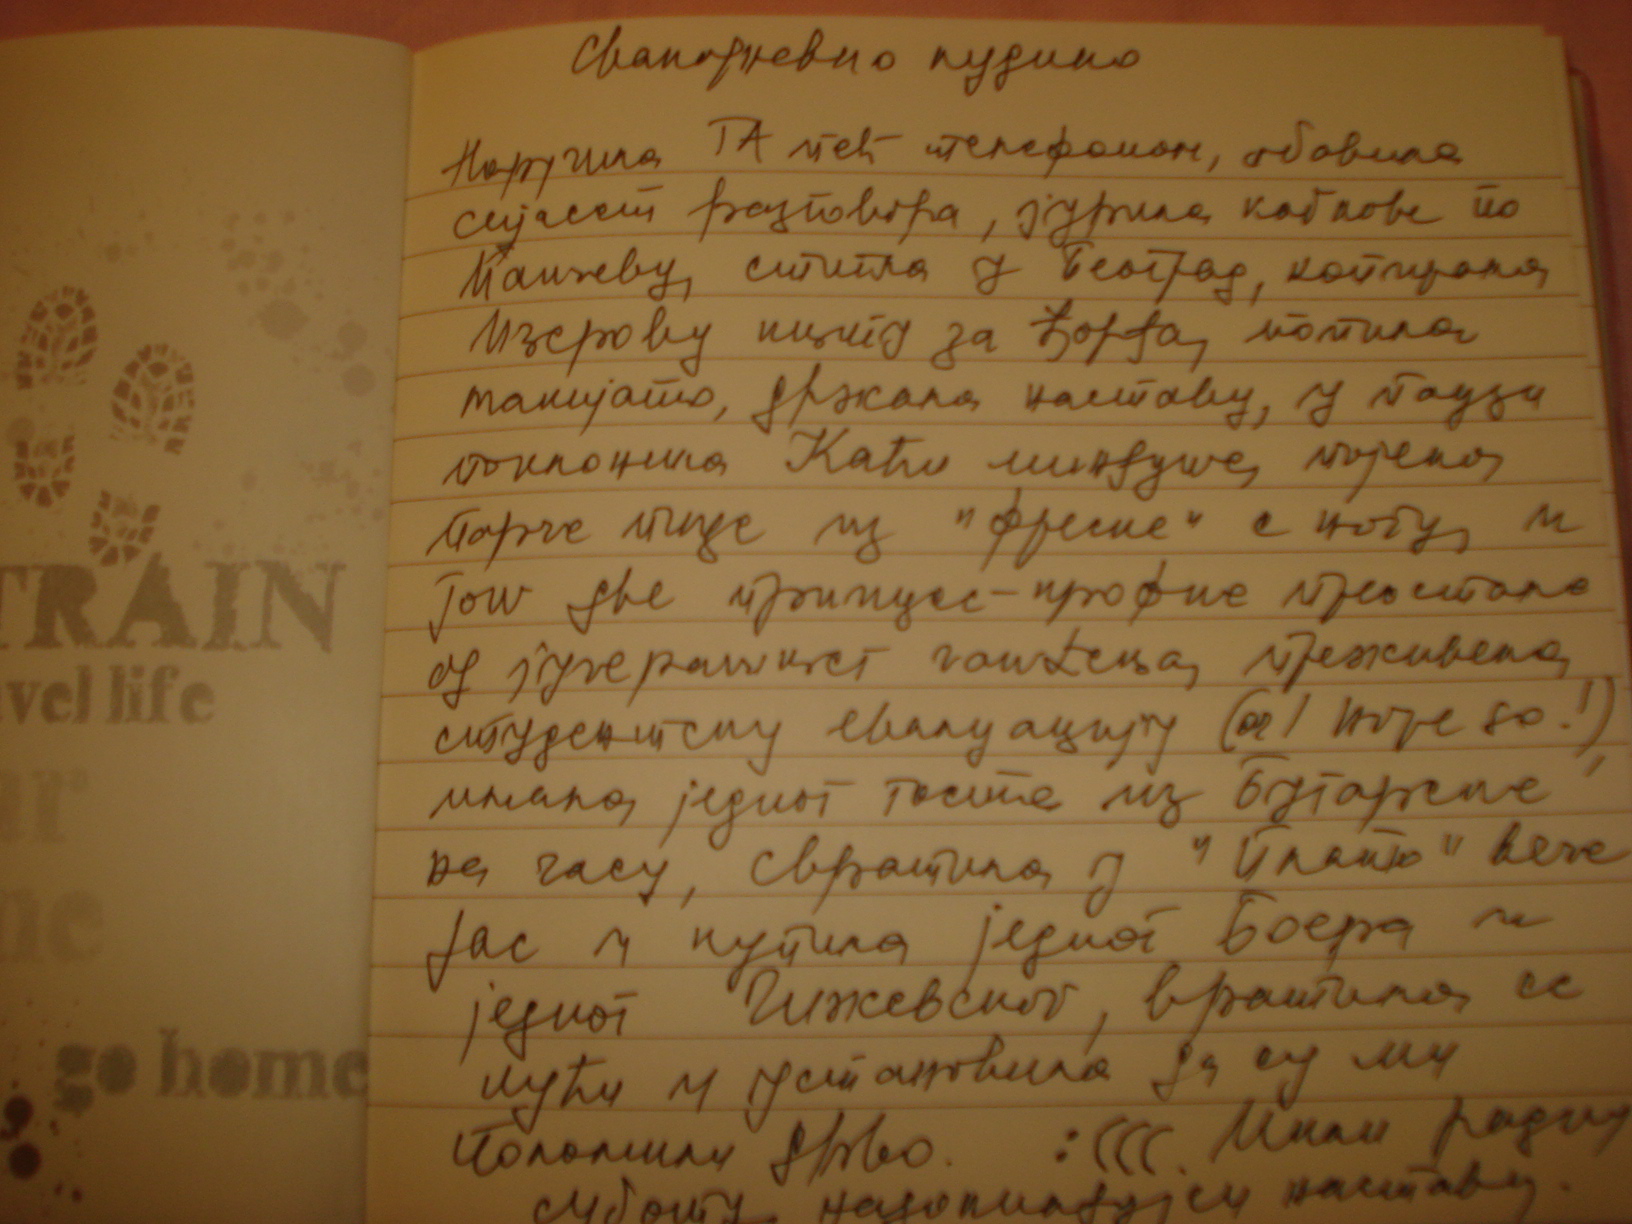 TRAIN
vel life
ar
me
go home
Свакодневно лудило
Наручила ТА пећ телефоном, обавила
сијасет разговора, јурила кодкове по
Панчеву, стигла у Београд, копирала
Изерову књигу за Ђорђа, попила
макијато, држала наставу, у паузи
поклонила Каћи минђуше, појела
парче пице из "фреске" с ногу и
још две принцес-крофне преостале
од јучерашњег чашћења, преживела
студентску евалуацију (or I hope so!),
имала једног госта из Бугарске
на часу, свратила у "Плато" вече
рас и купила једног Боера и
једног Чижевског, вратила се
кући и установила да су ми
поломили дрво. :(((. Имам радну
суботу, надокнађујем наставу.